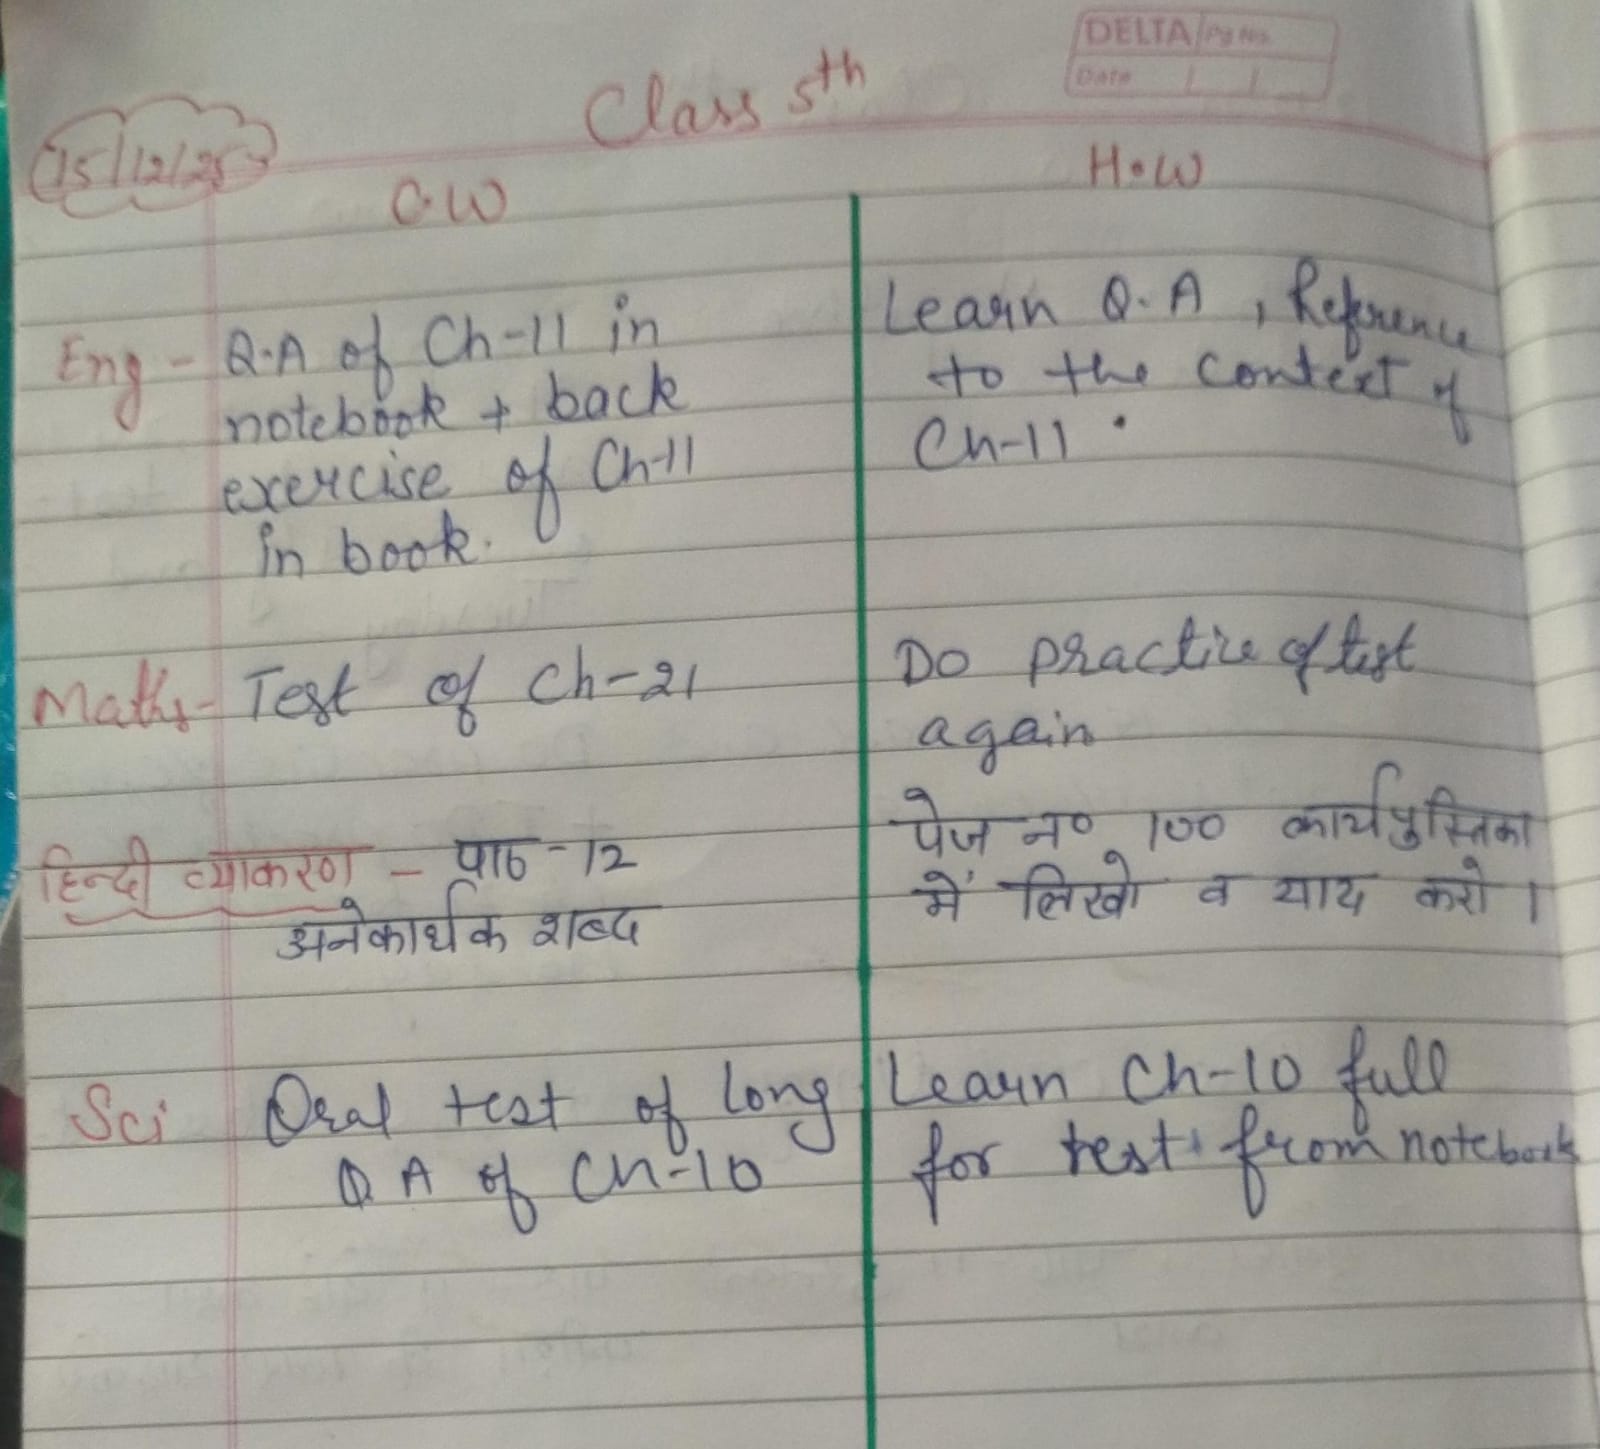 DELTA Pg No.
Date
Class 5th
15/12/25
C.W
H.W
Eng - Q.A of Ch-11 in
notebook + back
exercise of Ch-11
in book.
Learn Q.A , Reference
to the context of
Ch-11 .
Maths- Test of Ch-21
Do practice of test
again
हिन्दी व्याकरण - पाठ -12
अनेकार्थक शब्द
पेज न० 100 कार्यपुस्तिका
में लिखो व याद करो ।
Sci Oral test of long
Q A of Ch-10
Learn Ch-10 full
for test. from notebook